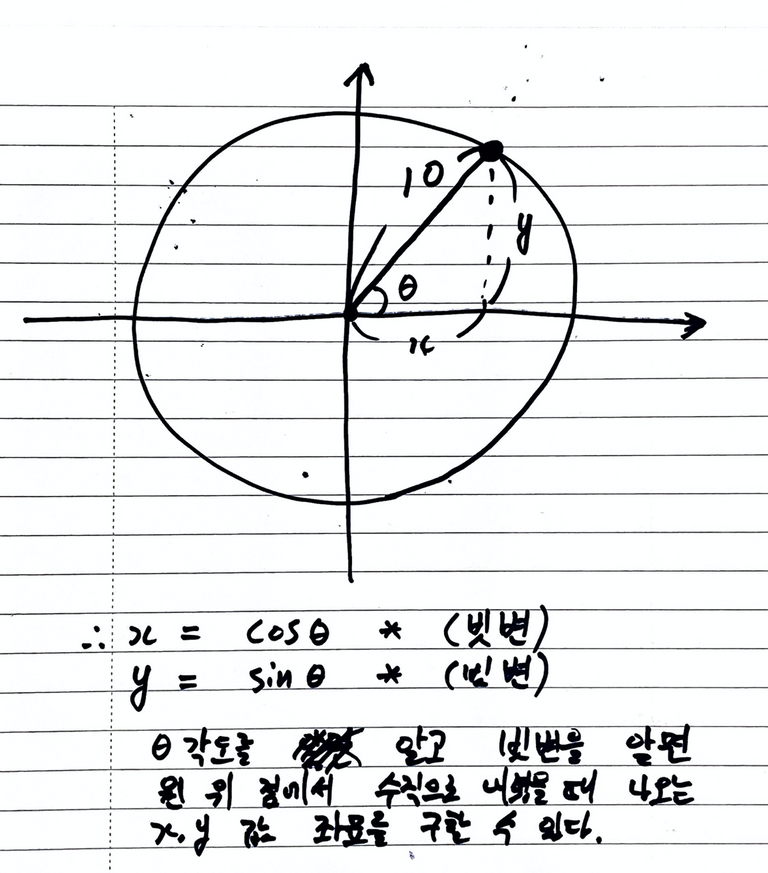 10
y
θ
x
∴ x = cosθ * (빗변)
y = sinθ * (빗변)
θ 각도를 알고 빗변을 알면
원 위 점에서 수직으로 내렸을 때 나오는
x, y 값 좌표을 구할 수 있다.